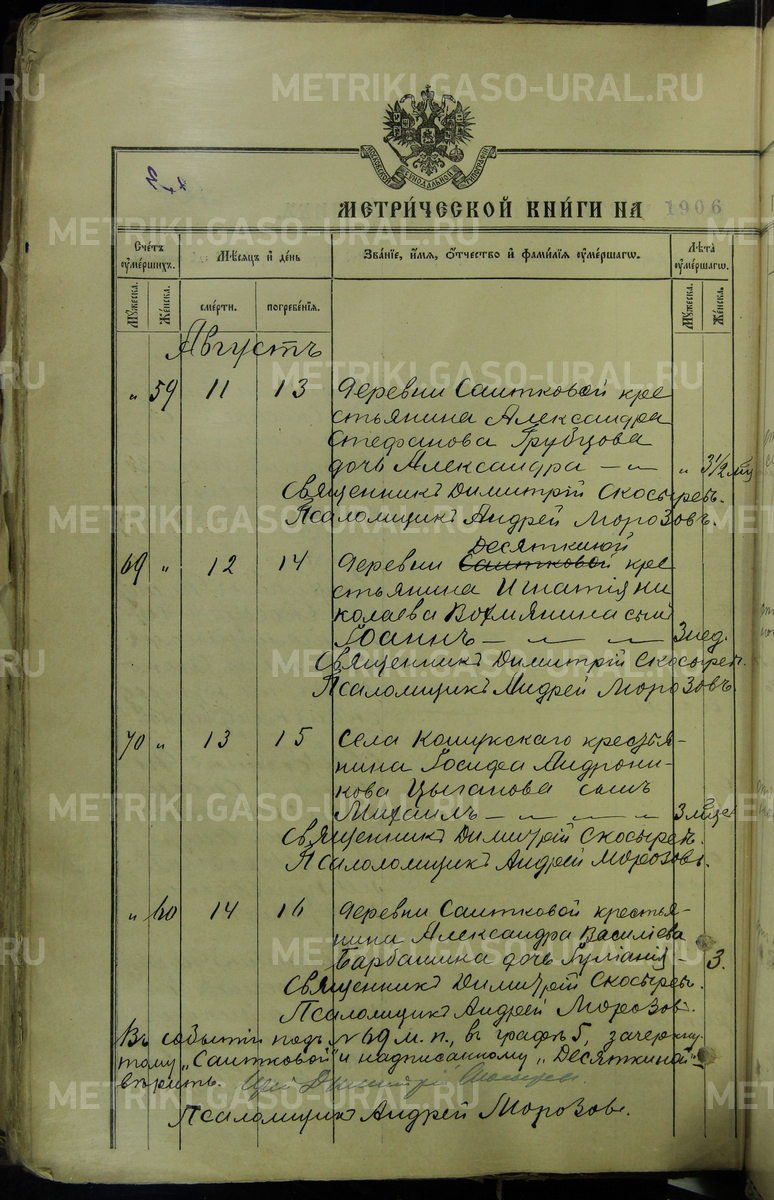 METRIKI.GASO-URAL.RU
МОСКОВСКОЙ СѴНОДАЛЬНОЙ ТИПОГРАФІИ
МЕТРИ́ЧЕСКОЙ КНИ́ГИ НА 1906
Счетъ ᲂумершихъ.
Мѣсяцъ и день
Званїе, имя, ѻтчество и фамилїя ᲂумершагѡ.
Лѣта ᲂумершагѡ.
Мужеска.
Женска.
смерти.
погребенїя.
Мужеска.
Женска.
Августъ
" 59 11 13 Деревни Саитковой кре
стьянина Александра
Стефанова Грубцова
дочь Александра — — " 3½ лѣт
Священникъ Димитрій Скосыревъ.
Псаломщикъ Андрей Морозовъ.
Десяткиной
69 " 12 14 Деревни Саитковой кре
стьянина Игнатія Ни
колаева Вохмянина сынъ
Іоаннъ — — — — 3 нед.
Священникъ Димитрій Скосырев.
Псаломщикъ Андрей Морозовъ.
70 " 13 15 Села Кошукскаго крестья-
нина Іосифа Андрони-
кова Цыганова сынъ
Михаилъ — — — — 3 мѣсяц
Священникъ Димитрій Скосырев.
Псаломщикъ Андрей Морозовъ.
" 60 14 16 Деревни Саитковой крестья-
нина Александра Василіева
Барбашина дочь Іуліанія — 3.
Священникъ Димитрій Скосырев.
Псаломщикъ Андрей Морозов.
Въ событіи подъ №69 м. п., въ графѣ 5, зачеркну-
тому „Саитковой" и надписанному „Десяткиной"
вѣрить. Димитрій Скосырев.
Псаломщикъ Андрей Морозов.